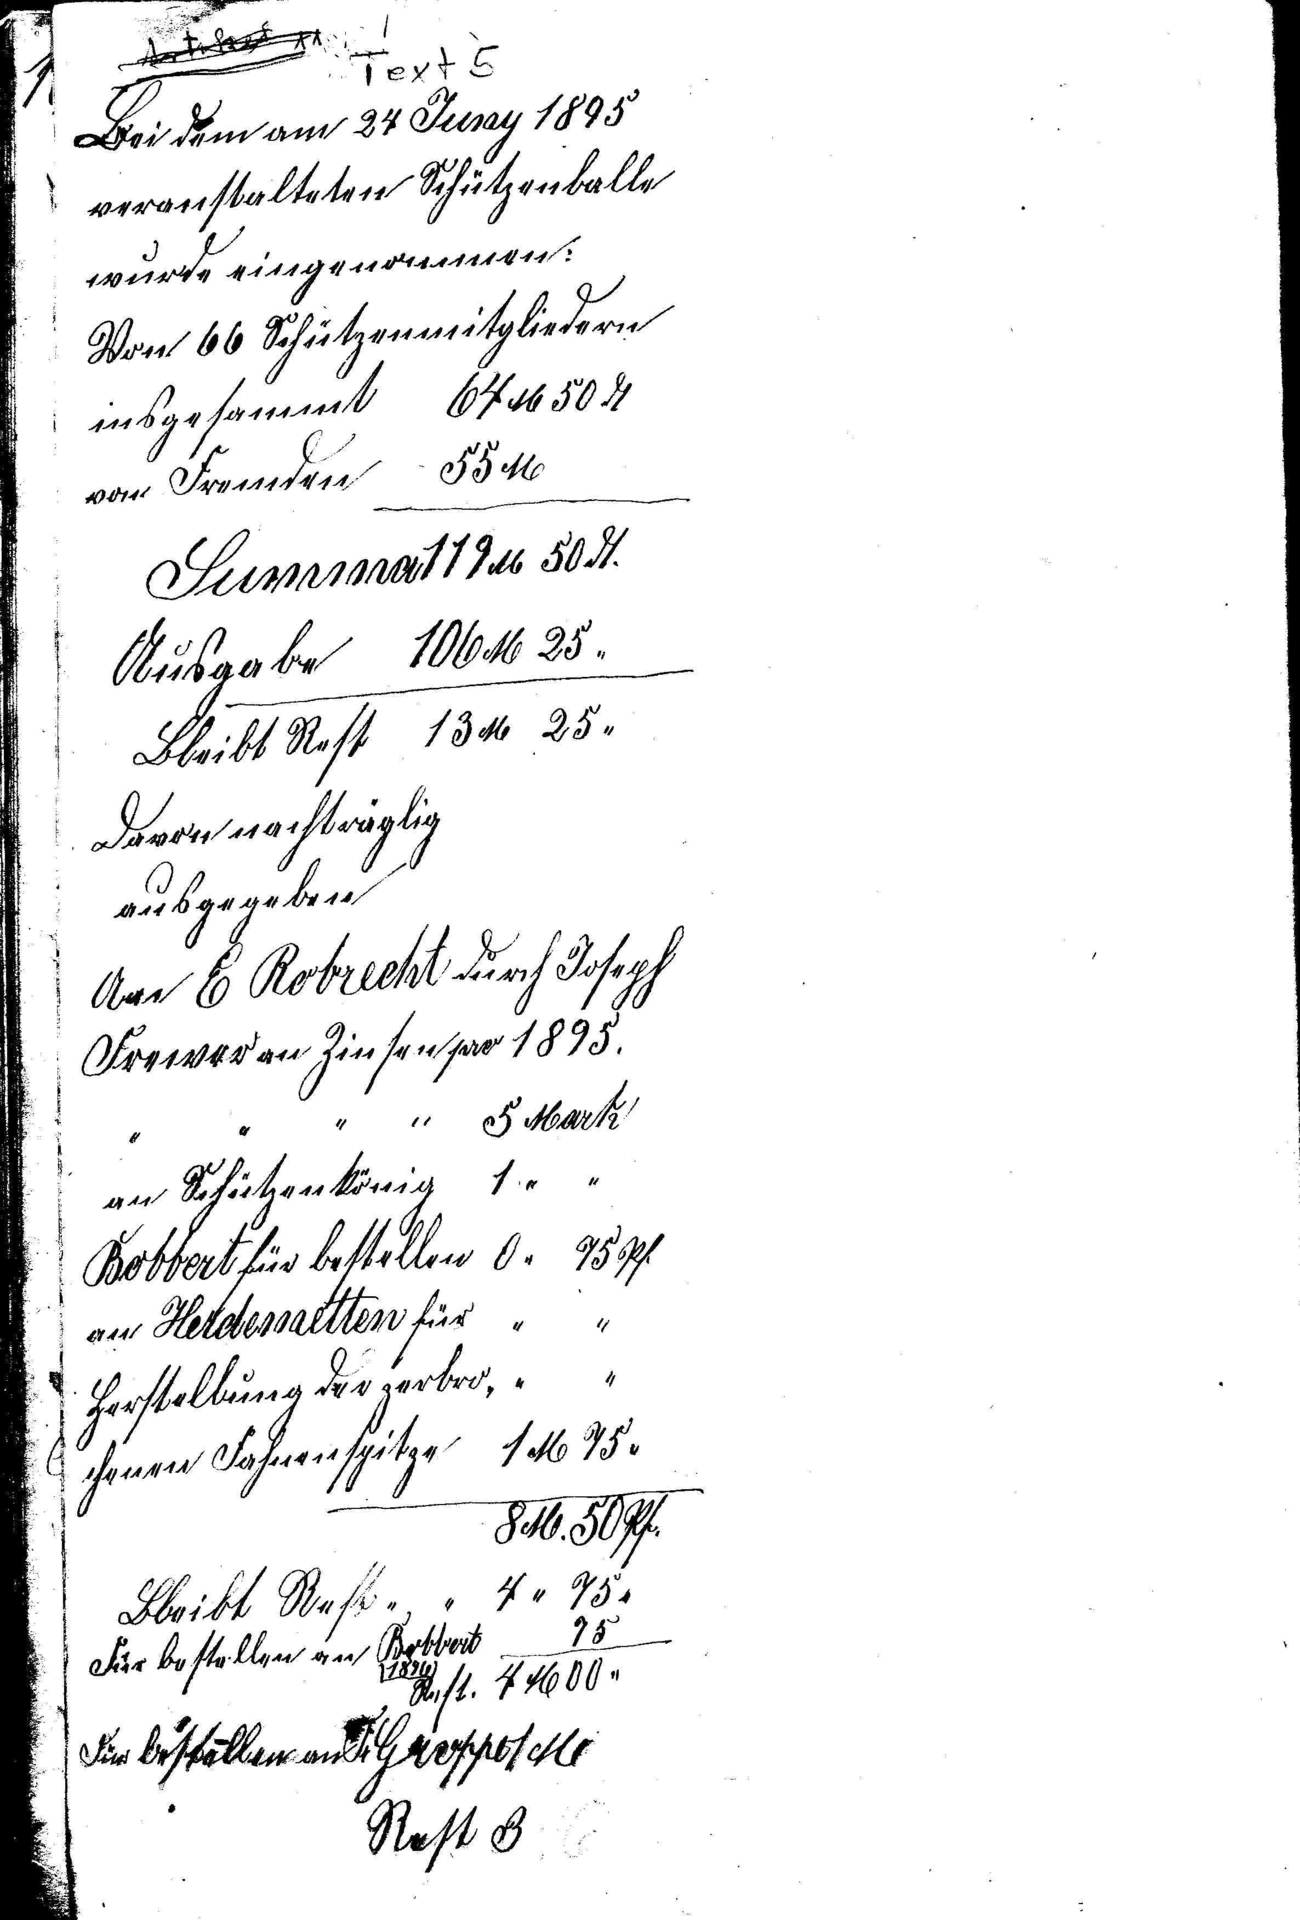 Text 5
Bei dem am 24 Juny 1895
veranstalteten Schützenballe
wurde eingenommen:
Von 66 Schützenmitgliedern
insgesammt 64 M 50 ₰
von Fremden 55 M
Summa 119 M 50 ₰.
Ausgabe 106 M 25 "
Bleibt Rest 13 M 25 "
Davon nachträglig
ausgegeben
An E Robrecht durch Joseph
Frewer an Zinsen pro 1895.
" " " " 5 Mark
an Schützenkönig 1 " "
Bobbert für bestellen 0 " 75 Pf.
an Heidemetten für " "
Herstellung der zerbro, " "
chenen Fahnenspitze 1 M 75 "
8 M. 50 Pf.
Bleibt Rest " " 4 " 75 "
Für bestellen an Bobbert 75
(1896)
Rest. 4 M 00 "
Für bestellen an Fr Groppe 1 M
Rest 3